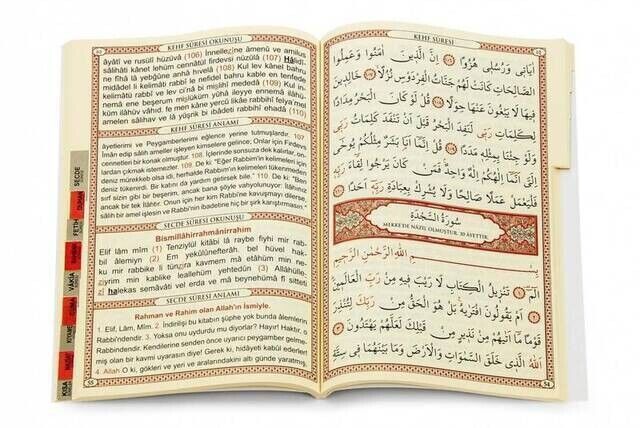 KEHF SÛRESİ OKUNUŞU
âyâtî ve rusulî hüzüvâ (106) İnnellezîne âmenû ve amilus
sâlihâti kânet lehüm cennâtül firdevsi nüzülâ (107) Hâlidî-
ne fîhâ lâ yebğûne anhâ hıvelâ (108) Kul lev kânel bahru
midâdel li kelimâti rabbî le nefidel bahru kable en tenfede
kelimâtü rabbî ve lev ci'nâ bi mislihî mededâ (109) Kul in-
nemâ ene beşerum mislüküm yûhâ ileyye ennemâ ilâhü-
küm ilâhüv vâhid, fe men kâne yercû likâe rabbihî felya'mel
amelen sâlihav ve lâ yüşrik bi ibâdeti rabbihî ehadâ (110)
KEHF SÛRESİ ANLAMI
âyetlerimi ve Peygamberlerimi eğlence yerine tutmuşlardır. 107.
İman edip salih ameller işleyen kimselere gelince; Onlar için Firdevs
cennetleri bir konak olmuştur. 108. İçlerinde sonsuza dek kalırlar, on-
lardan çıkmak istemezler. 109. De ki: "Eğer Rabbim'in kelimeleri için
deniz mürekkeb olsa idi, herhalde Rabbimin kelimeleri tükenmeden
deniz tükenirdi. Bir katını da yardım getirsek bile." 110. De ki: "Ben
sırf sizin gibi bir beşerim, ancak bana şöyle vahyolunuyor: İlâhınız
ancak bir tek İlâhtır. Onun için her kim Rabbi'ne kavuşmayı dilerse,
salih bir amel işlesin ve Rabbi'nin ibadetine hiç bir şirk karıştırmasın."
SECDE SÛRESİ OKUNUŞU
Bismillâhirrahmânirrahîm
Elif lâm mîm (1) Tenzîlül kitâbi lâ raybe fîhi mir rab-
bil âlemiyn (2) Em yekûlûnefterâh. bel hüvel hak-
ku mir rabbike li tünzira kavmem mâ etâhüm min ne-
ziyrim min kablike leallehüm yehtedûn (3) Allâhülle-
zî halekas semâvâti vel erda ve mâ beynehümâ fî sitteti
SECDE SÛRESİ ANLAMI
Rahman ve Rahim olan Allah'ın İsmiyle.
1. Elif, Lâm, Mîm. 2. İndirilişi bu kitabın şüphe yok bunda âlemlerin
Rabbi'ndendir. 3. Yoksa onu uydurdu mu diyorlar? Hayır! Haktır, o
Rabbindendir. Kendilerine senden önce uyarıcı peygamber gelme-
miş olan bir kavmi uyarasın diye! Gerek ki, hidâyeti kabûl ederler!
4. Allah O ki, gökleri ve yeri ve aralarındakini altı günde yaratmış,
SECDE
DUHAN
FETİH
VÂKIA
KIYAMET
KEHF SÛRESİ
اٰيَاتٖي وَرُسُلٖي هُزُوًا ﴿١٠٦﴾ اِنَّ الَّذٖينَ اٰمَنُوا وَعَمِلُوا
الصَّالِحَاتِ كَانَتْ لَهُمْ جَنَّاتُ الْفِرْدَوْسِ نُزُلًا ﴿١٠٧﴾ خَالِدٖينَ
فٖيهَا لَا يَبْغُونَ عَنْهَا حِوَلًا ﴿١٠٨﴾ قُلْ لَوْ كَانَ الْبَحْرُ مِدَادًا
لِكَلِمَاتِ رَبّٖي لَنَفِدَ الْبَحْرُ قَبْلَ اَنْ تَنْفَدَ كَلِمَاتُ رَبّٖي
وَلَوْ جِئْنَا بِمِثْلِهٖ مَدَدًا ﴿١٠٩﴾ قُلْ اِنَّمَا اَنَا بَشَرٌ مِثْلُكُمْ يُوحٰى
اِلَيَّ اَنَّمَا اِلٰهُكُمْ اِلٰهٌ وَاحِدٌ فَمَنْ كَانَ يَرْجُوا لِقَاءَ رَبِّهٖ
فَلْيَعْمَلْ عَمَلًا صَالِحًا وَلَا يُشْرِكْ بِعِبَادَةِ رَبِّهٖ اَحَدًا ﴿١١٠﴾
سُورَةُ السَّجْدَةِ
MEKKE'DE NÂZİL OLMUŞTUR. 30 ÂYETTİR.
بِسْمِ اللّٰهِ الرَّحْمٰنِ الرَّحٖيمِ
الٓمٓ ﴿١﴾ تَنْزٖيلُ الْكِتَابِ لَا رَيْبَ فٖيهِ مِنْ رَبِّ الْعَالَمٖينَ
﴿٢﴾ اَمْ يَقُولُونَ افْتَرٰيهُ بَلْ هُوَ الْحَقُّ مِنْ رَبِّكَ لِتُنْذِرَ
قَوْمًا مَا اَتٰيهُمْ مِنْ نَذٖيرٍ مِنْ قَبْلِكَ لَعَلَّهُمْ يَهْتَدُونَ ﴿٣﴾
اَللّٰهُ الَّذٖي خَلَقَ السَّمٰوَاتِ وَالْاَرْضَ وَمَا بَيْنَهُمَا فٖي سِتَّةِ